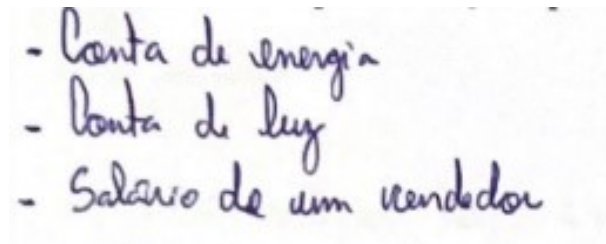 - Conta de energia
- Conta de luz
- Salário de um vendedor